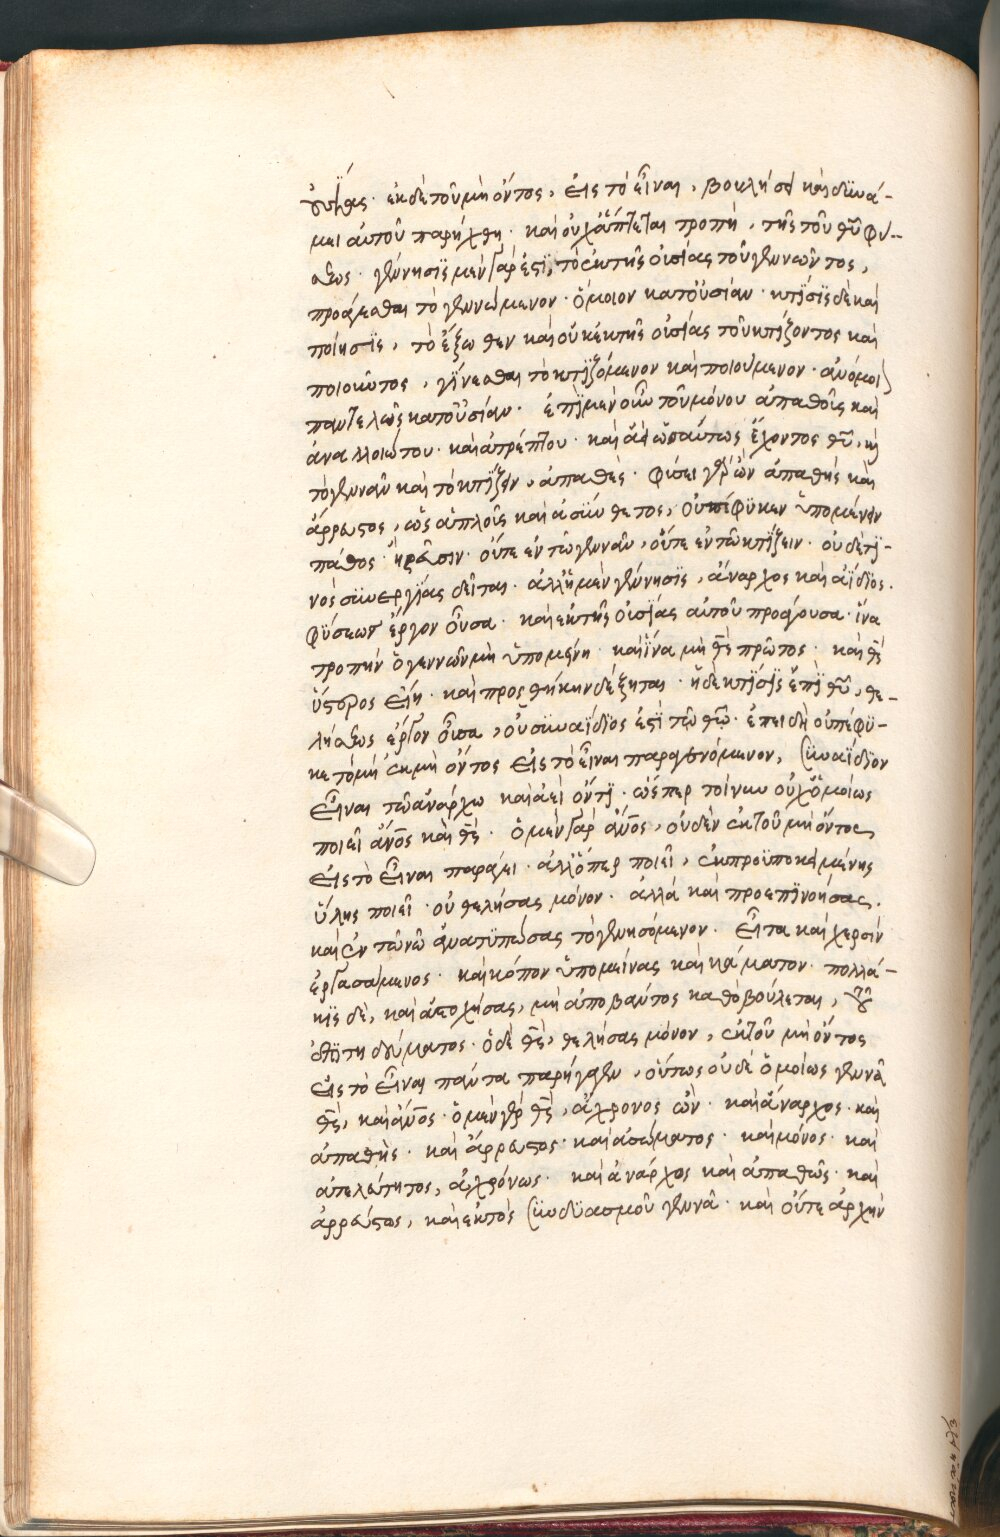 γενηθεῖσα· ἐκ δὲ τοῦ μὴ ὄντος, εἰς τὸ εἶναι, βουλήσει καὶ δϋνά-
μει αὐτοῦ παρήχθη· καὶ οὐχ ἅπτεται τροπὴ, τῆς τοῦ θῦ φύ-
σεως· γέννησϊς μὲν γάρ ἐστϊ, τὸ ἐκ τῆς οὐσίας τοῦ γεννῶντος,
προάγεσθαι τὸ γεννώμενον· ὅμοιον κατ' οὐσίαν· κτΐσϊς δὲ καὶ
ποίησϊς, τὸ ἔξωθεν καὶ οὐκ ἐκ τῆς οὐσίας τοῦ κτΐζοντος καὶ
ποιοῦντος, γΐνεσθαι τὸ κτϊζόμενον καὶ ποιούμενον· ἀνόμοιον
παντελῶς κατ' οὐσίαν· ἐπῒ μὲν οὖν τοῦ μόνου ἀπαθοῦς καὶ
ἀναλλοιώτου· καὶ ἀτρέπτου· καὶ ἀεὶ ὡσαύτως ἔχοντος θῦ, κỳ
τὸ γεννᾶν καὶ τὸ κτΐζειν, ἀπαθές· φύσει γὰρ ὢν ἀπαθὴς καὶ
ἄρρευστος, ὡς ἁπλοῦς καὶ ἀσΰνθετος, οὐ πέφϋκεν ὑπομένειν
πάθος ἢ ρεῦσιν· οὔτε ἐν τῶ γεννᾶν, οὔτε ἐν τῶ κτΐζειν· οὐδέ τϊ-
νος σϋνεργΐας δεῖται· ἀλλ' ἡ μὲν γέννησϊς, ἄναρχος καὶ ἀΐδϊος·
φΰσεως ἔργον οὖσα· καὶ ἐκ τῆς οὐσΐας αὐτοῦ προάγουσα· ἵνα
τροπὴν ὁ γεννῶν μὴ ὑπομένη· καὶ ἵνα μὴ θς̄ πρῶτος· καὶ θς̄
ὕστερος εἴη· καὶ προσθήκην δέξηται· ἡ δὲ κτΐσϊς ἐπῒ θῦ, θε-
λήσεως ἔργον οὖσα, οὐ σϋναΐδϊός ἐστϊ τῶ θῶ· ἐπειδὴ οὐ πέφϋ-
κε τὸ μὴ ἐκ μὴ ὄντος εἰς τὸ εἶναι παραγόμενον, σϋναΐδϊον
εἶναι τῶ ἀνάρχω καὶ ἀεὶ ὄντϊ· ὥσπερ τοίνυν οὐχ ὁμοίως
ποιεῖ ἄνο̄ς καὶ θς̄· ὁ μὲν γὰρ ἄνο̄ς, οὐδὲν ἐκ τοῦ μὴ ὄντος
εἰς τὸ εἶναι παράγει· ἀλλ' ὅπερ ποιεῖ, ἐκ προϋποκειμένης
ὕλης ποιεῖ· οὐ θελήσας μόνον· ἀλλὰ καὶ προεπϊνοήσας·
καὶ ἐν τῶ νῶ ἀνατϋπώσας τὸ γενησόμενον· εἶτα καὶ χερσὶν
ἐργασάμενος· καὶ κόπον ὑπομείνας καὶ κάματον· πολλά-
κϊς δὲ, καὶ ἀστοχήσας, μὴ ἀποβάντος καθὸ βούλεται, τοῦ
ἐγχειρήματος· ὁ δὲ θς̄, θελήσας μόνον, ἐκ τοῦ μὴ ὄντος
εἰς τὸ εἶναι πάντα παρήγαγεν, οὕτως οὐδὲ ὁμοίως γεννᾶ
θς̄, καὶ ἄνο̄ς· ὁ μὲν γὰρ θς̄, ἄχρονος ὢν· καὶ ἄναρχος· καὶ
ἀπαθὴς· καὶ ἄρρευστος· καὶ ἀσώματος· καὶ μόνος· καὶ
ἀτελεύτητος, ἀχρόνως· καὶ ἀνάρχως καὶ ἀπαθῶς· καὶ
ἀρρεύστως, καὶ ἐκτὸς σϋνδϋασμοῦ γεννᾶ· καὶ οὔτε ἀρχὴν